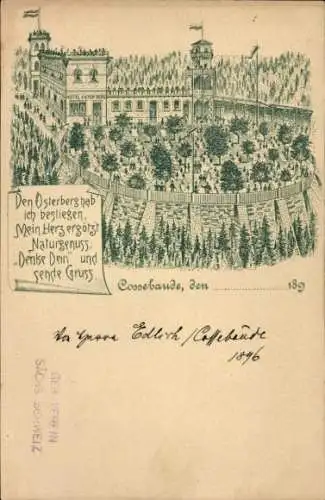 HOTEL OSTERBERG
Den Osterberg hab
ich bestiegen,
Mein Herz ergötzt
Naturgenuss.
„Denke Dein” und
sende Gruss.
Cossebaude, den 189
Edlich / Cossebäude
1896
SÄCHS SCHWEIZ